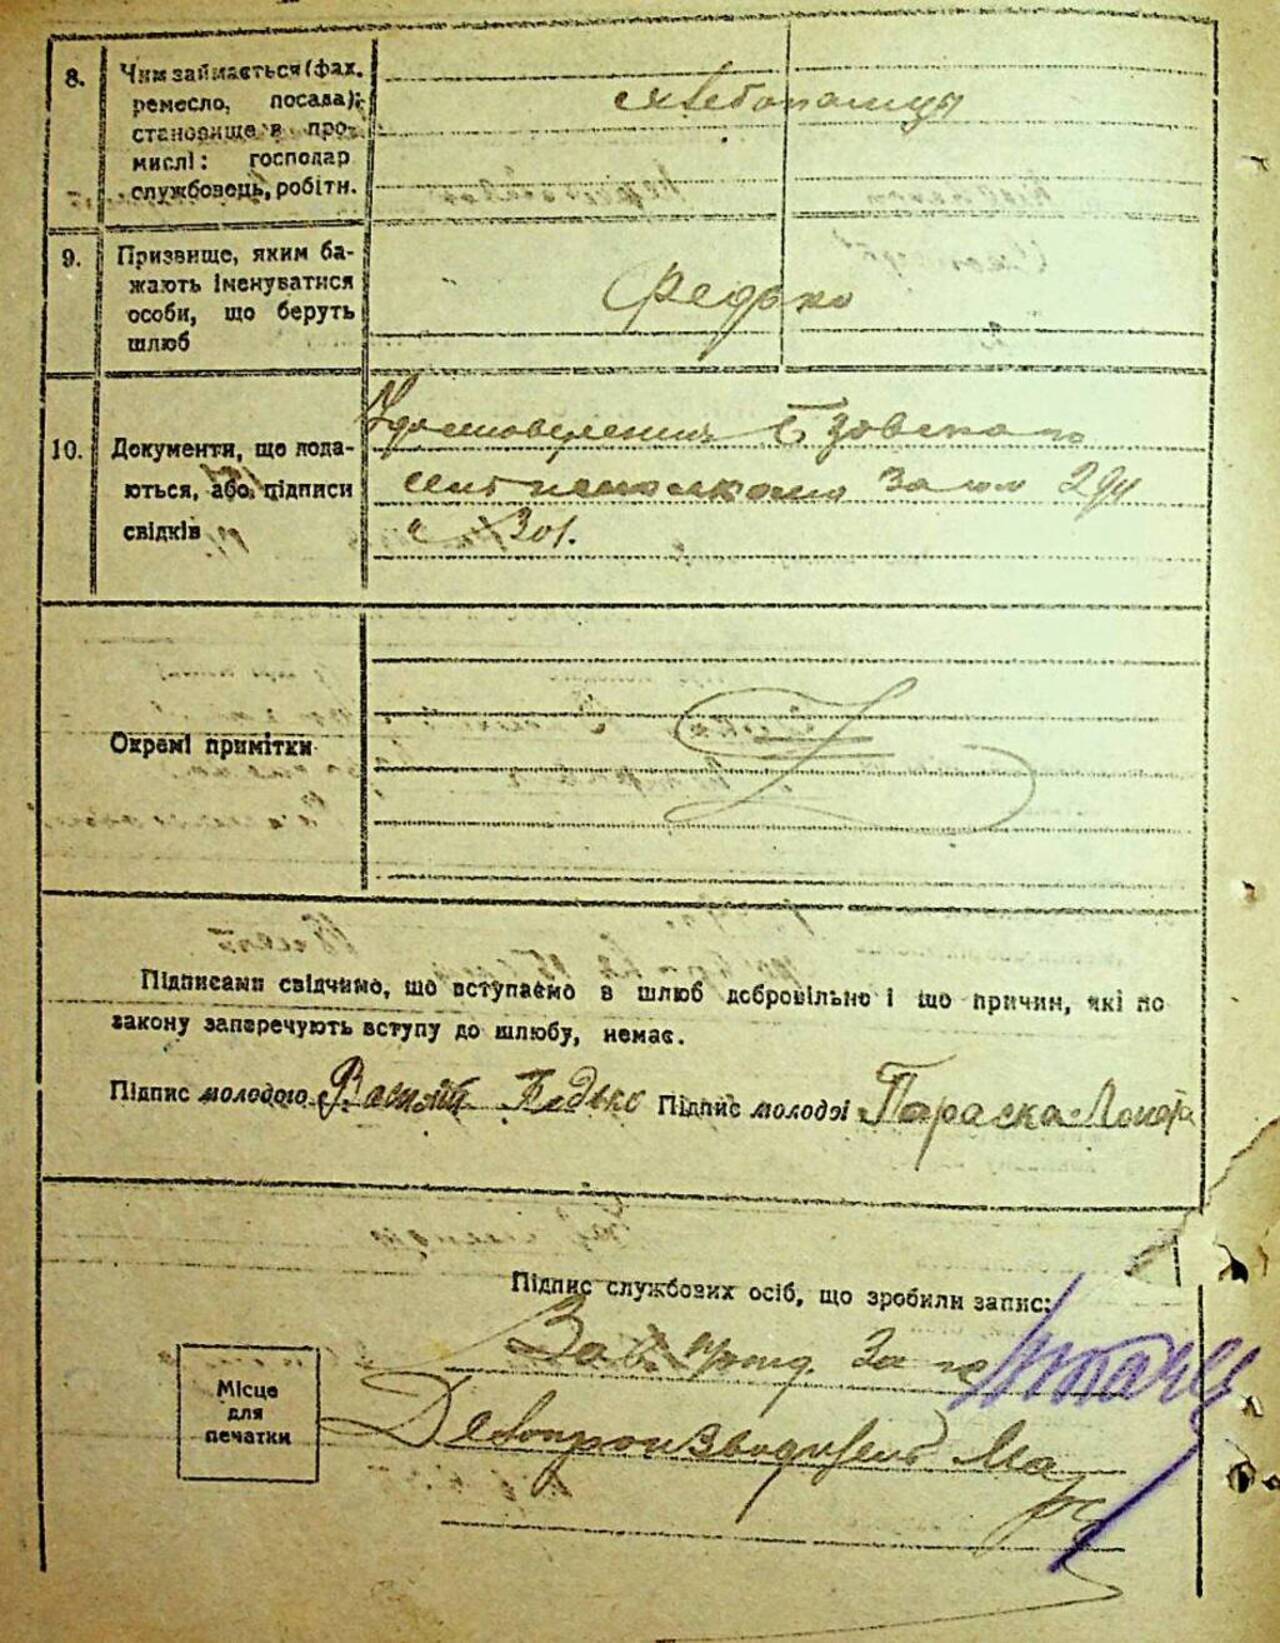 8.
Чим займається (фах.
ремесло, посада);
становище в про-
мислі: господар
службовець, робітн.
хлебопашцы
9.
Призвище, яким ба-
жають іменуватися
особи, що беруть
шлюб
Федько
10.
Документи, що пода-
ються, або підписи
свідків
Удостоверения Бзовского
сельисполкома За №№ 294
и 301.
Окремі примітки
Підписами свідчимо, що вступаємо в шлюб добровільно і що причин, які по
закону заперечують вступу до шлюбу, немає.
Підпис молодого Василь Федько Підпис молодэі Параска
Підпис службових осіб, що зробили запис:
Зав.
Делопроизводитель
Місце
для
печатки